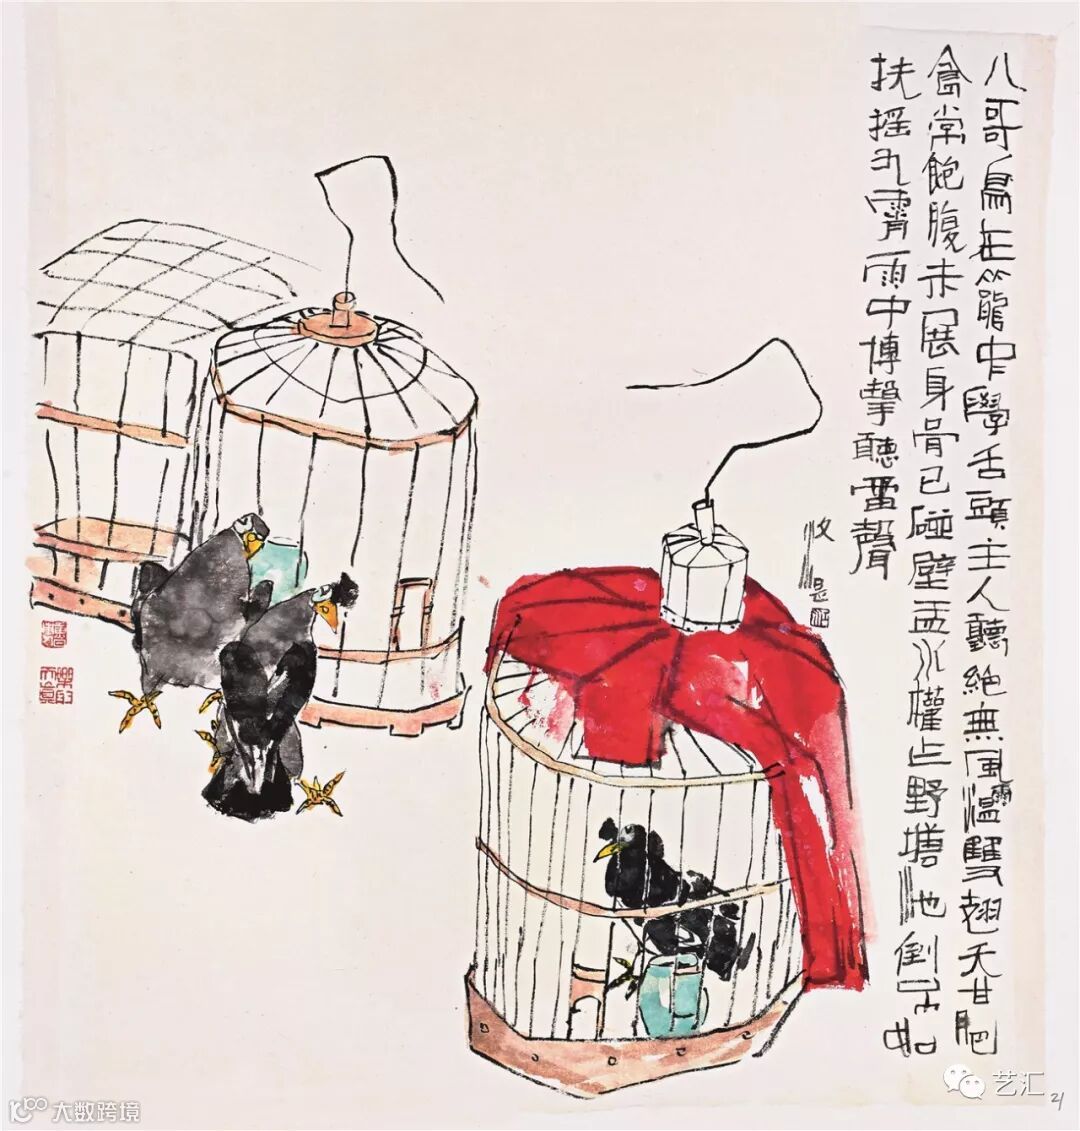 八哥鳥在籠中學舌頭主人聽絕無風雨濕雙翅天甘肥
食常飽腹未展身骨已碰壁盂水權野塘池倒不如
扶搖九霄雨中博擊聽雷聲
艺汇
21
大数跨境